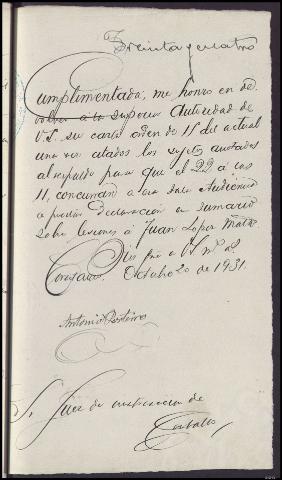 Treinta y cuatro
Cumplimentada, me honro en de
volver a la superior Autoridad de
V.S. su carta orden de 15 del actual
una vez citados los sujetos anotados
al respaldo para que el 22 a las
11, concurran a esa Sala Audiencia
a prestar declaración en sumario
sobre lesiones á Juan Lopez
Dios gue a V.S. ms as
Octubre 20 de 1931.
Antonio
S. Juez de instruccion de
Carballo,